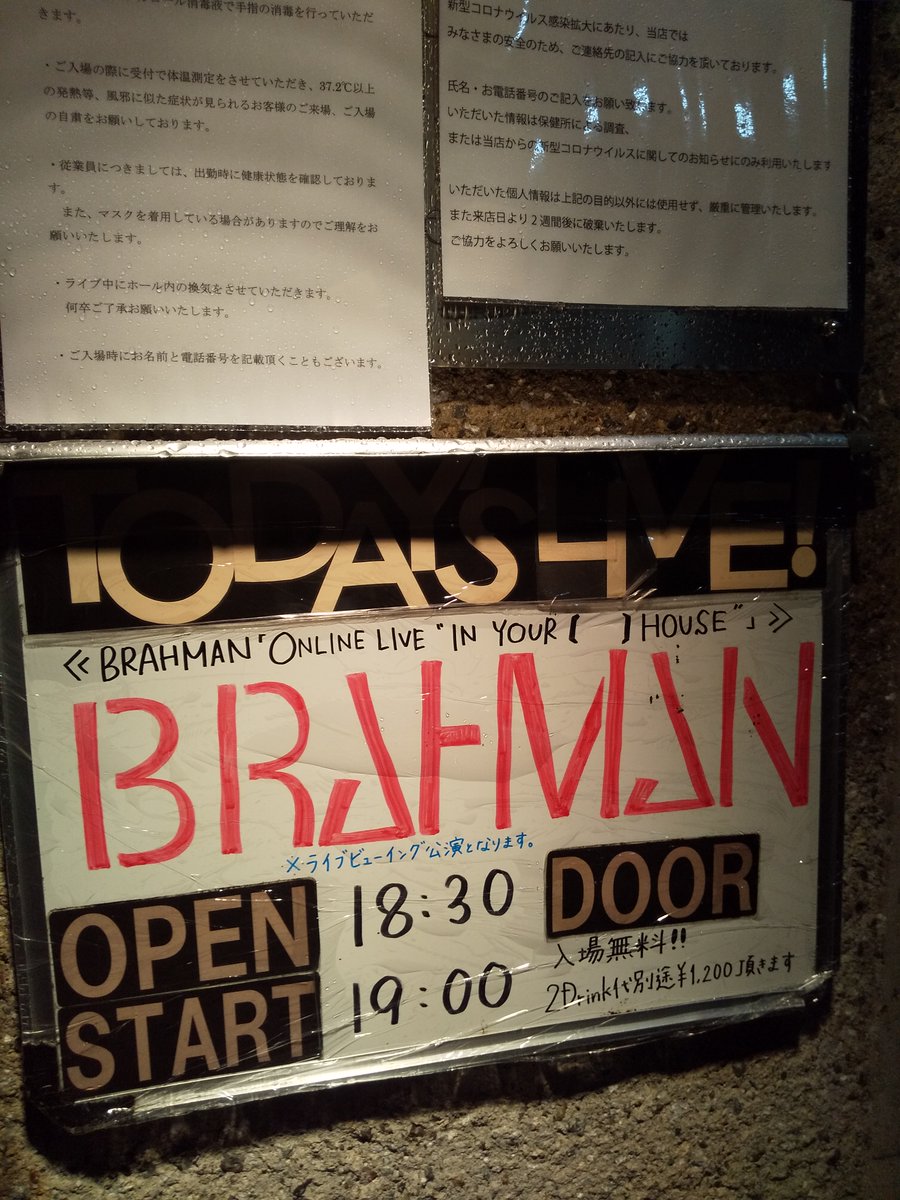 ール消毒液で手指の消毒を行っていただ
きます。
・ご入場の際に受付で体温測定をさせていただき、37.2℃以上
の発熱等、風邪に似た症状が見られるお客様のご来場、ご入場
の自粛をお願いしております。
・従業員につきましては、出勤時に健康状態を確認しておりま
す。
また、マスクを着用している場合がありますのでご理解をお
願いいたします。
・ライブ中にホール内の換気をさせていただきます。
何卒ご了承お願いいたします。
・ご入場時にお名前と電話番号を記載頂くこともございます。
新型コロナウイルス感染拡大にあたり、当店では
みなさまの安全のため、ご連絡先の記入にご協力を頂いております。
氏名・お電話番号のご記入をお願い致します。
いただいた情報は保健所による調査、
または当店からの新型コロナウイルスに関してのお知らせにのみ利用いたします
いただいた個人情報は上記の目的以外には使用せず、厳重に管理いたします。
また来店日より2週間後に破棄いたします。
ご協力をよろしくお願いいたします。
TODAY'S LIVE!
≪BRAHMAN「ONLINE LIVE "IN YOUR【 】HOUSE"」≫
BRAHMAN
※ライブビューイング公演となります。
OPEN 18:30
START 19:00
DOOR
入場無料!!
2Drink代別途¥1,200頂きます